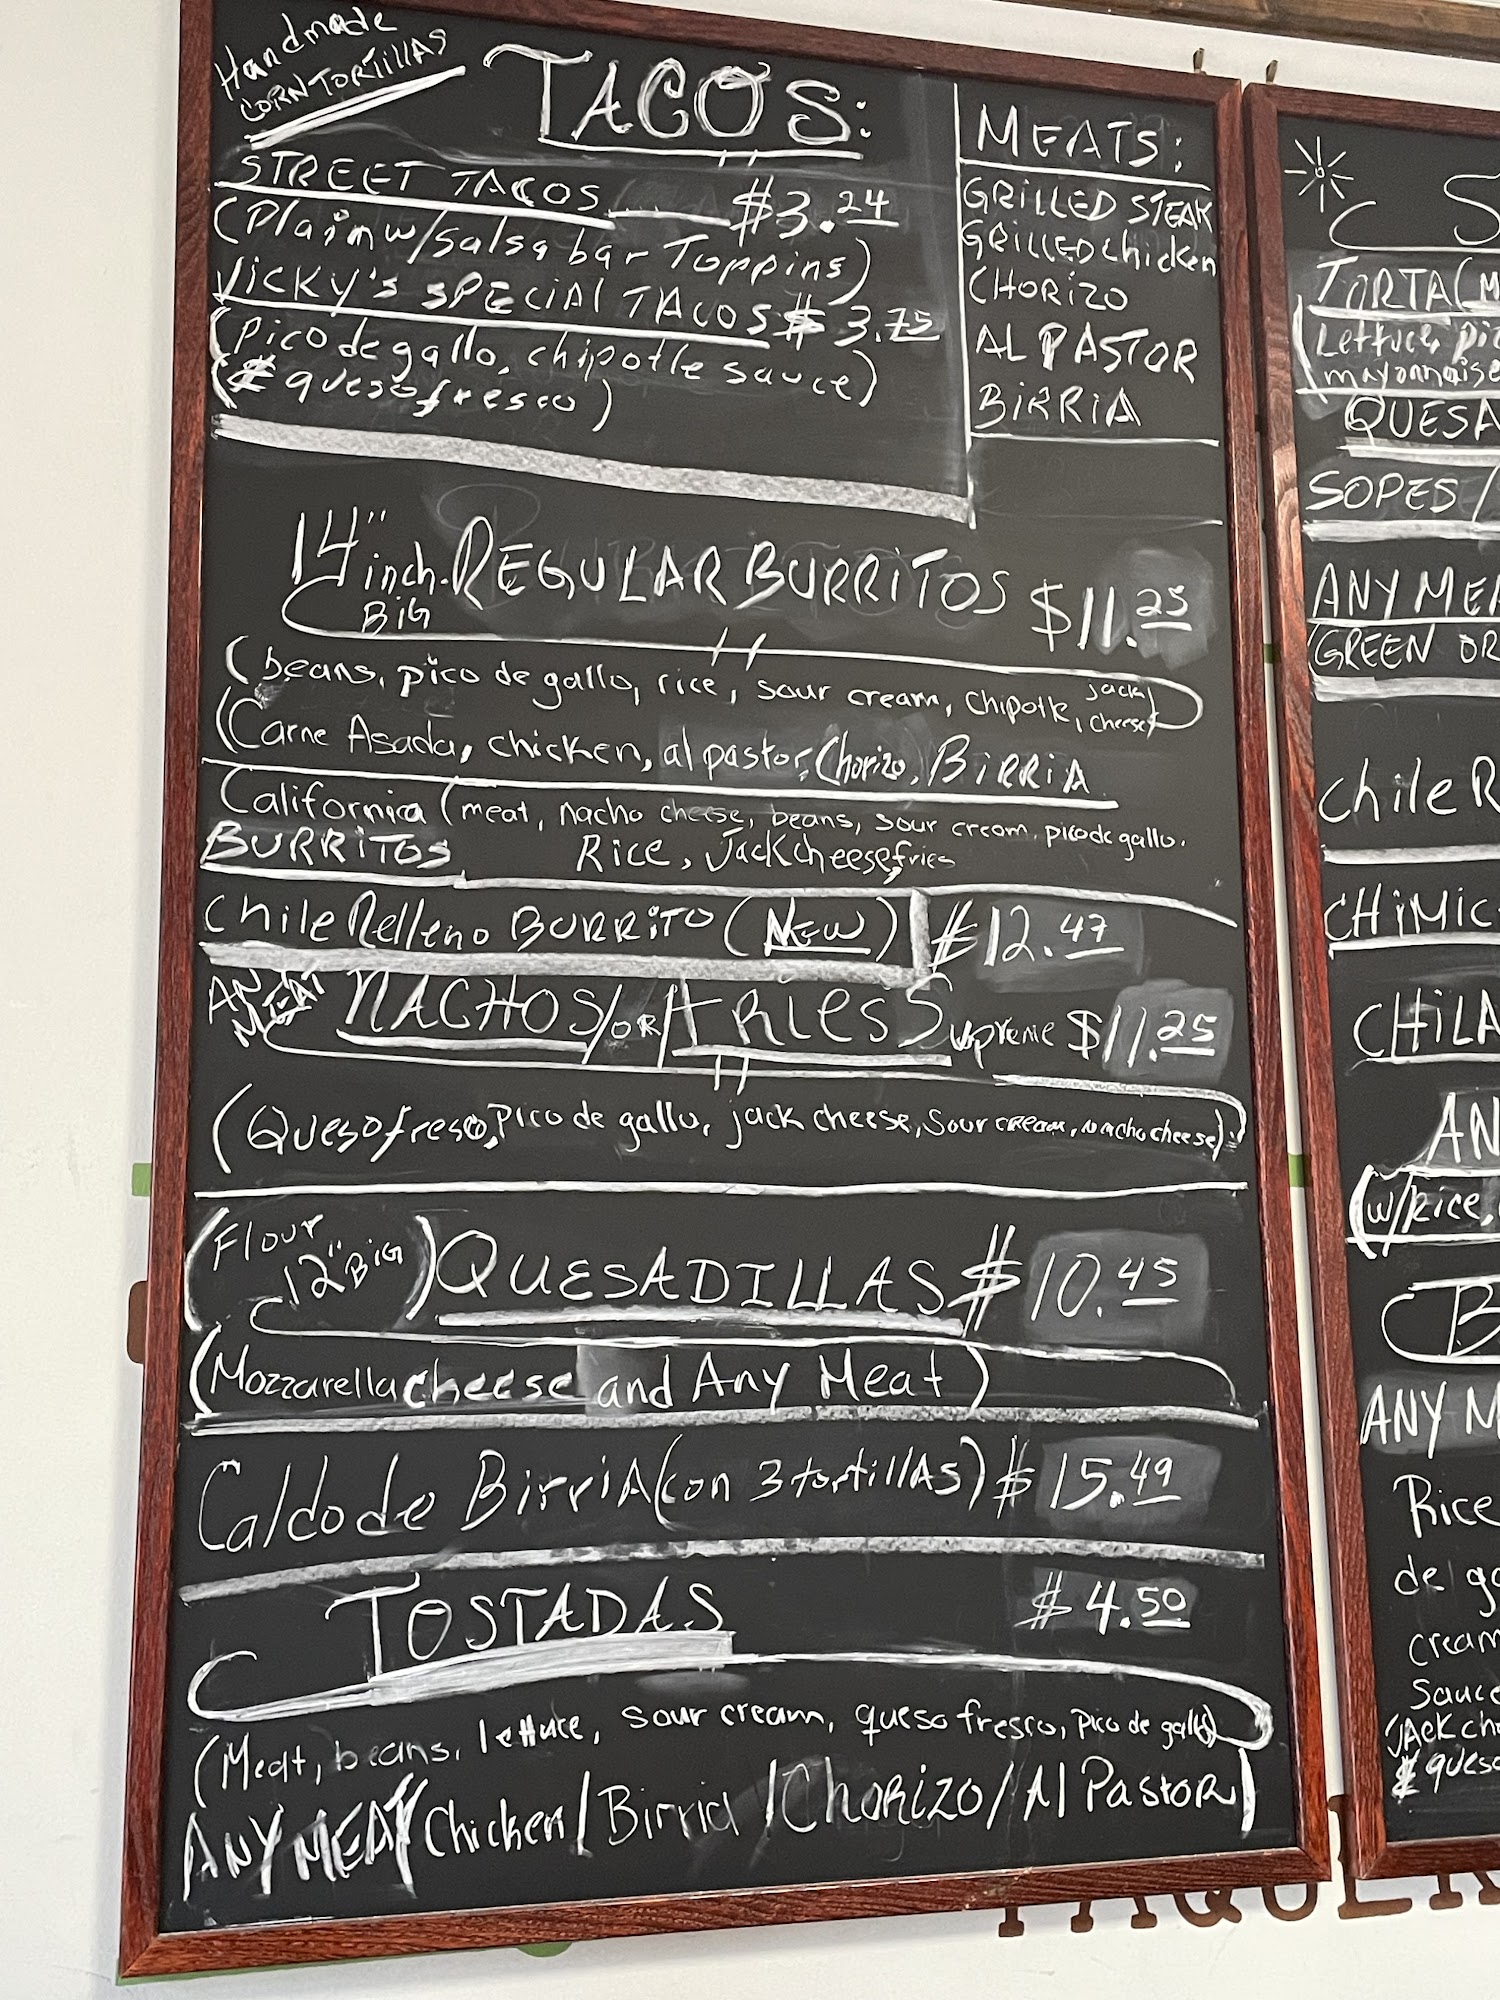 Handmade
CORN TORTILLAS
TACOS:
STREET TACOS $3.24
(Plain w/salsa bar Toppins)
VICKY'S SPECIAL TACOS $3.75
(pico de gallo, chipotle sauce)
(& queso fresco)
MEATS:
GRILLED STEAK
GRILLED chicken
CHORIZO
AL PASTOR
BIRRIA
14" inch. REGULAR BURRITOS $11.25
BIG
(beans, pico de gallo, rice, sour cream, chipotle, jack cheese)
(Carne Asada, chicken, al pastor, Chorizo, BIRRIA
California (meat, nacho cheese, beans, sour cream, pico de gallo.
BURRITOS Rice, Jack cheese, fries
Chile Relleno BURRITO (NEW) $12.47
ANY MEAT NACHOS/OR FRIES Supreme $11.25
(Queso fresco, pico de gallo, jack cheese, sour cream, nacho cheese)
(Flour 12" BIG) QUESADILLAS $10.45
(Mozzarella cheese and Any Meat)
Caldo de Birria (con 3 tortillas) $15.49
TOSTADAS $4.50
(Meat, beans, lettuce, sour cream, queso fresco, pico de gallo)
ANY MEAT (Chicken/Birria/Chorizo/Al Pastor)
TORTA (M
(Lettuce, pic
mayonnaise
QUESA
SOPES/
ANY MEA
(GREEN OR
Chile R
CHIMIC
CHILA
AN
(w/Rice,
B
ANY M
Rice
de ga
cream
Sauce
JACK che
& queso
TAQUER